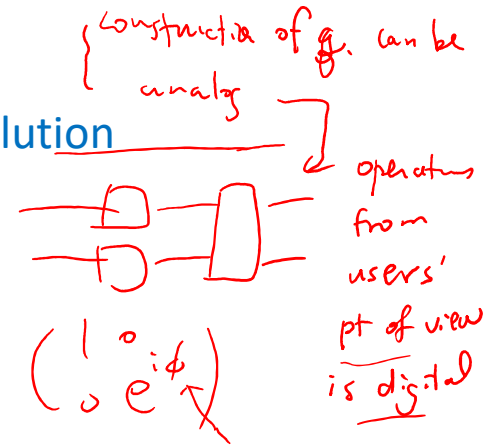 construction of g. can be
analog
lution
operations
from
users'
pt of view
is digital
( 1 0
0 e^{iϕ} )